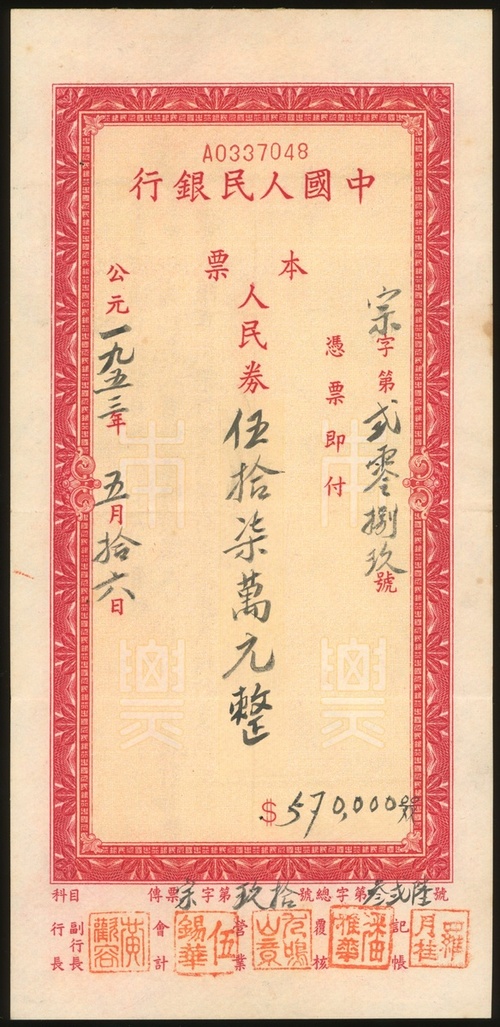 A0337048
中國人民銀行
本票
宗字第貳零捌玖號
憑票即付
人民券伍拾柒萬元整
公元一九五三年五月拾六日
$570,000
科目 傳票宗字第玖拾號總字第叁弍陸號
記帳 羅月桂
覆核
營業
會計 伍錫華
副行長
行長